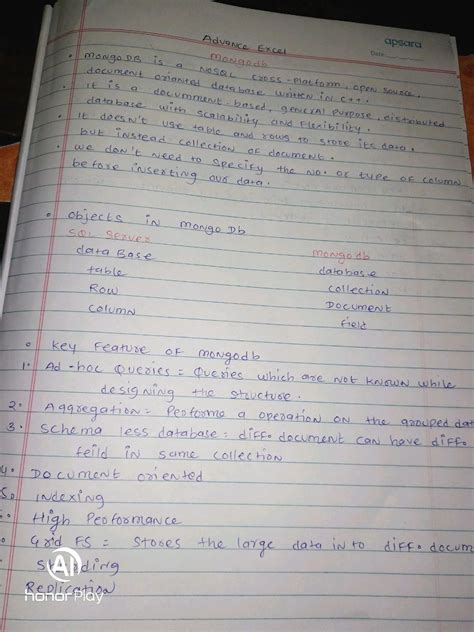 Advance Excel
apsara
Date:
mongodb
• mongo DB is a NoSQL cross-platform, open source,
document orianted database written in C++.
• it is a document-based, general purpose, distributed
database with scalability and flexibility.
• it doesn't use table and rows to store its data.
but instead collection of document.
• we don't need to specify the no. or type of column
before inserting our data.
• Objects in mongo Db
SQL Server mongodb
data Base database
table collection
Row Document
column field
• Key Feature of mongodb
1. Ad-hoc Queries = Queries which are not known while
designing the structure.
2. Aggregation = Performe a operation on the grouped dat
3. Schema less database = diff. document can have diff.
feild in same collection
4. Document oriented
5. indexing
High Performance
Grid FS = Stores the large data in to diff. docum
Replication
AI
honor Play